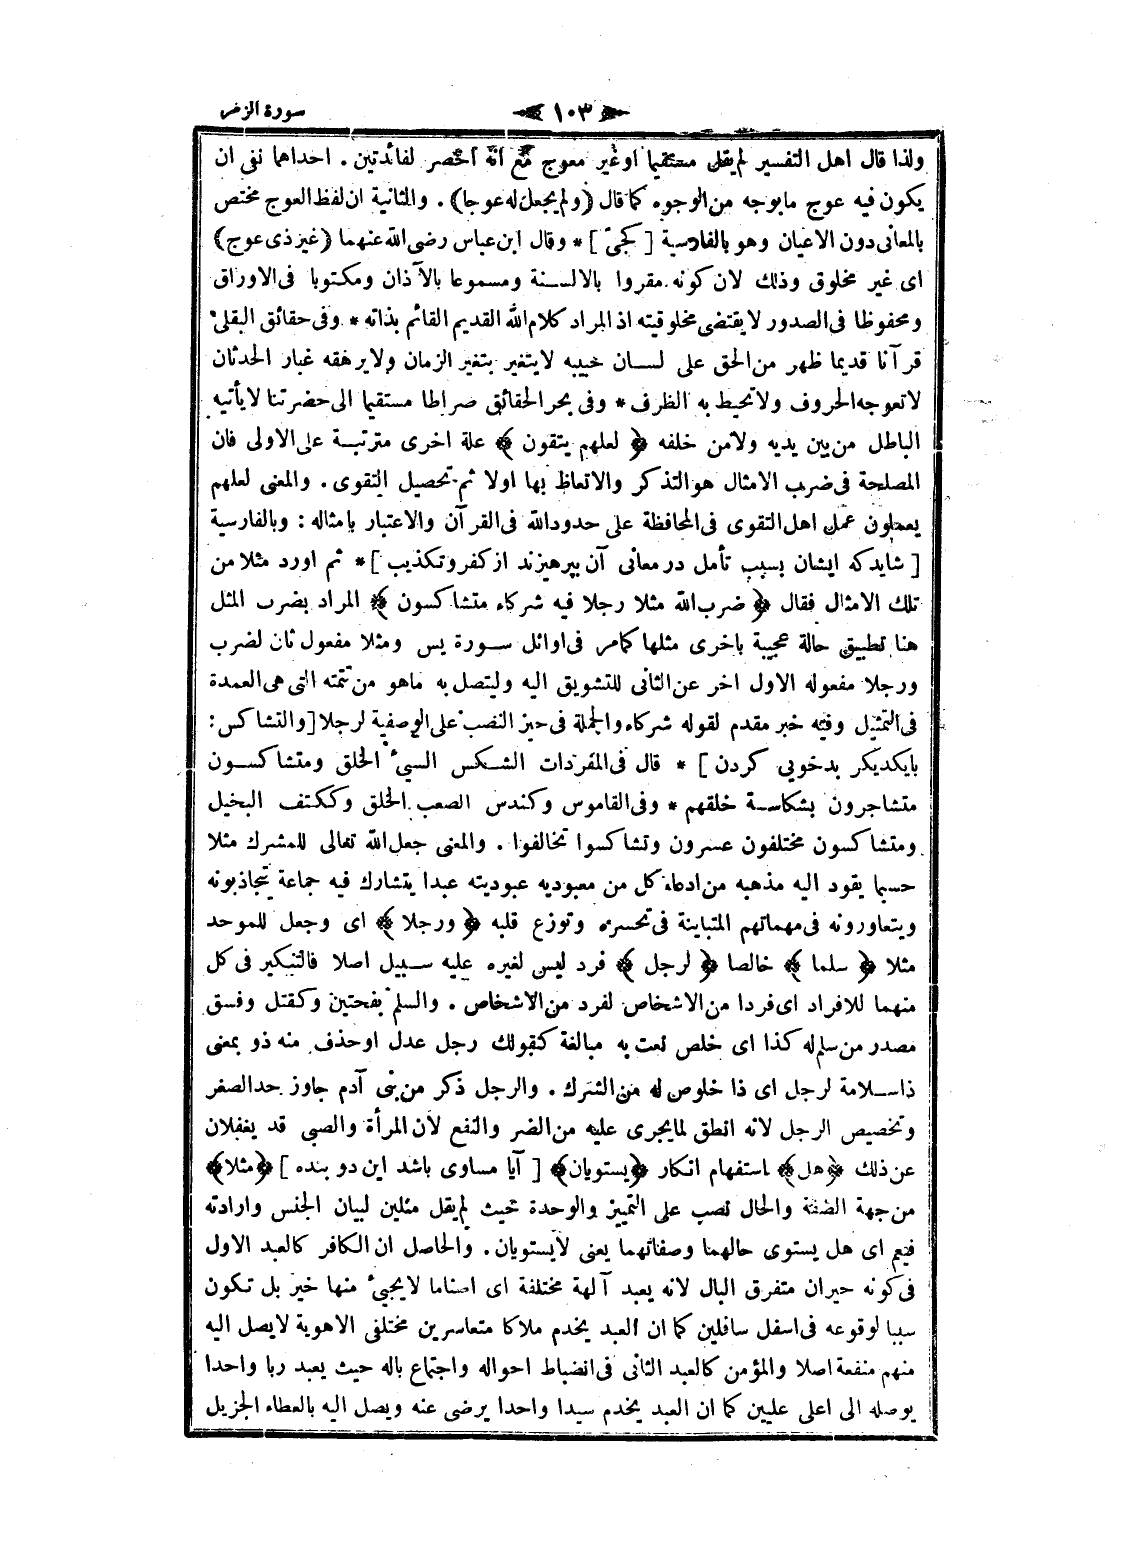 سورة الزمر
١٠٣
ولذا قال اهل التفسير لم يقل مستقيما اوغير معوج مع انه اخصر لفائدتين . احداهما نفى ان
يكون فيه عوج مابوجه من الوجوه كما قال (ولم يجعل له عوجا) . والثانية ان لفظ العوج مختص
بالمعانى دون الاعيان وهو بالفارسية [ كجئ ] * وقال ابن عباس رضى الله عنهما (غير ذى عوج)
اى غير مخلوق وذلك لان كونه مقروا بالالسنة ومسموعا بالآذان ومكتوبا فى الاوراق
ومحفوظا فى الصدور لا يقتضى مخلوقيته اذ المراد كلام الله القديم القائم بذاته * وفى حقائق البقلى
قرآنا قديما ظهر من الحق على لسان حبيبه لا يتغير بتغير الزمان ولا يرهقه غبار الحدثان
لا تعوجه الحروف ولا تحيط به الظرف * وفى بحر الحقائق صراطا مستقيما الى حضرتنا لا يأتيه
الباطل من بين يديه ولا من خلفه ﴿ لعلهم يتقون ﴾ علة اخرى مترتبة على الاولى فان
المصلحة فى ضرب الامثال هو التذكر والاتعاظ بها اولا ثم تحصيل التقوى . والمعنى لعلهم
يعملون عمل اهل التقوى فى المحافظة على حدود الله فى القرآن والاعتبار بامثاله : وبالفارسية
[ شايد كه ايشان بسبب تأمل در معانى آن بپرهيزند از كفر وتكذيب ] * ثم اورد مثلا من
تلك الامثال فقال ﴿ ضرب الله مثلا رجلا فيه شركاء متشاكسون ﴾ المراد بضرب المثل
هنا تطبيق حالة عجيبة باخرى مثلها كمامر فى اوائل سورة يس ومثلا مفعول ثان لضرب
ورجلا مفعوله الاول اخر عن الثانى للتشويق اليه وليتصل به ماهو من تتمته التى هى العمدة
فى التمثيل وفيه خبر مقدم لقوله شركاء والجملة فى حيز النصب على الوصفية لرجلا [والتشاكس :
بايكديكر بدخويى كردن ] * قال فى المفردات الشكس السيئ الخلق ومتشاكسون
متشاجرون بشكاسة خلقهم * وفى القاموس وكندس الصعب الخلق وككتف البخيل
ومتشاكسون مختلفون عسرون وتشاكسوا تخالفوا . والمعنى جعل الله تعالى للمشرك مثلا
حسبما يقود اليه مذهبه من ادعاء كل من معبوديه عبوديته عبدا يتشارك فيه جماعة يتجاذبونه
ويتعاورونه فى مهماتهم المتباينة فى تحسره وتوزع قلبه ﴿ ورجلا ﴾ اى وجعل للموحد
مثلا ﴿ سلما ﴾ خالصا ﴿ لرجل ﴾ فرد ليس لغيره عليه سبيل اصلا فالتنكير فى كل
منهما للافراد اى فردا من الاشخاص لفرد من الاشخاص . والسلم بفحتين وكقتل وفسق
مصدر من سلم له كذا اى خلص نعت به مبالغة كقولك رجل عدل اوحذف منه ذو بمعنى
ذا سلامة لرجل اى ذا خلوص له من الشرك . والرجل ذكر من بنى آدم جاوز حد الصغر
وتخصيص الرجل لانه انطق لمايجرى عليه من الضر والنفع لان المرأة والصبى قد يغفلان
عن ذلك ﴿هل﴾ استفهام انكار ﴿يستويان﴾ [ آيا مساوى باشد اين دو بنده ] ﴿مثلا﴾
من جهة الصفة والحال نصب على التمييز والوحدة حيث لم يقل مثلين لبيان الجنس وارادته
فيعم اى هل يستوى حالهما وصفاتهما يعنى لايستويان . والحاصل ان الكافر كالعبد الاول
فى كونه حيران متفرق البال لانه يعبد آلهة مختلفة اى اصناما لايجيئ منها خير بل تكون
سببا لوقوعه فى اسفل سافلين كما ان العبد يخدم ملاكا متعاسرين مختلفى الاهوية لا يصل اليه
منهم منفعة اصلا والمؤمن كالعبد الثانى فى انضباط احواله واجتماع باله حيث يعبد ربا واحدا
يوصله الى اعلى عليين كما ان العبد يخدم سيدا واحدا يرضى عنه ويصل اليه بالعطاء الجزيل